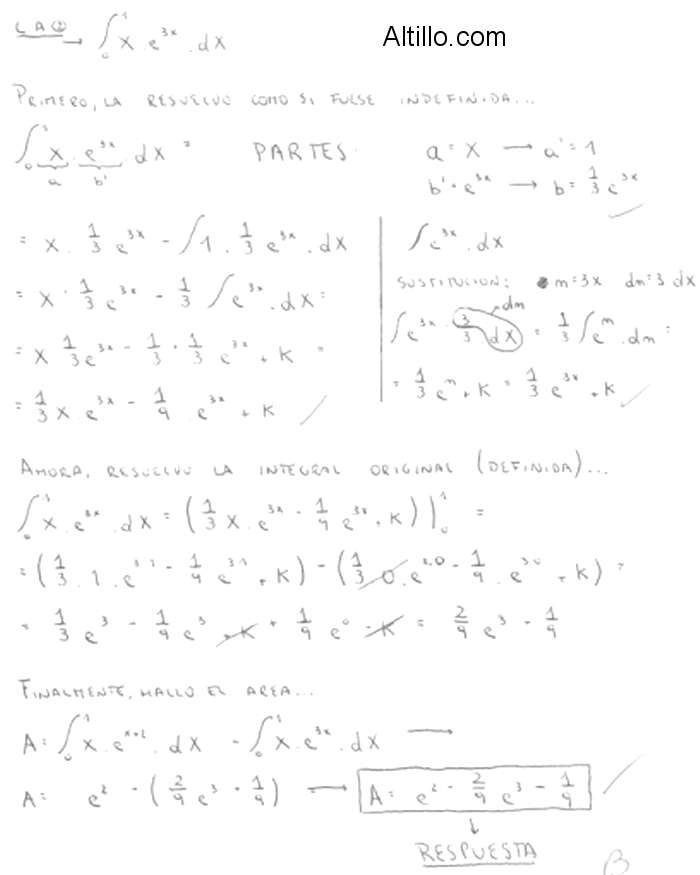 CA② → ∫₀¹ x · e^{3x} · dx
Altillo.com
PRIMERO, LA RESUELVO COMO SI FUESE INDEFINIDA...
∫₀¹ x · e^{3x} · dx = PARTES a = x → a' = 1
a b' b' = e^{3x} → b = 1/3 e^{3x}
= x · 1/3 e^{3x} - ∫ 1 · 1/3 e^{3x} · dx
= x · 1/3 e^{3x} - 1/3 ∫ e^{3x} · dx =
= x 1/3 e^{3x} - 1/3 · 1/3 e^{3x} + K =
= 1/3 x e^{3x} - 1/9 e^{3x} + K
∫ e^{3x} · dx
SUSTITUCION: m = 3x dm = 3 dx
∫ e^{3x} · 3/3 dx = 1/3 ∫ e^m · dm =
dm
= 1/3 e^m + K = 1/3 e^{3x} + K
AHORA, RESUELVO LA INTEGRAL ORIGINAL (DEFINIDA)...
∫₀¹ x · e^{3x} · dx = (1/3 x · e^{3x} - 1/9 e^{3x} + K) |₀¹ =
= (1/3 · 1 · e^{3·1} - 1/9 e^{3·1} + K) - (1/3 · 0 · e^{3·0} - 1/9 · e^{3·0} + K) =
= 1/3 e^3 - 1/9 e^3 + K + 1/9 e^0 - K = 2/9 e^3 + 1/9
FINALMENTE, HALLO EL AREA...
A = ∫₀¹ x · e^{x+2} · dx - ∫₀¹ x · e^{3x} · dx →
A = e^2 - (2/9 e^3 + 1/9) → A = e^2 - 2/9 e^3 - 1/9
↓
RESPUESTA
B